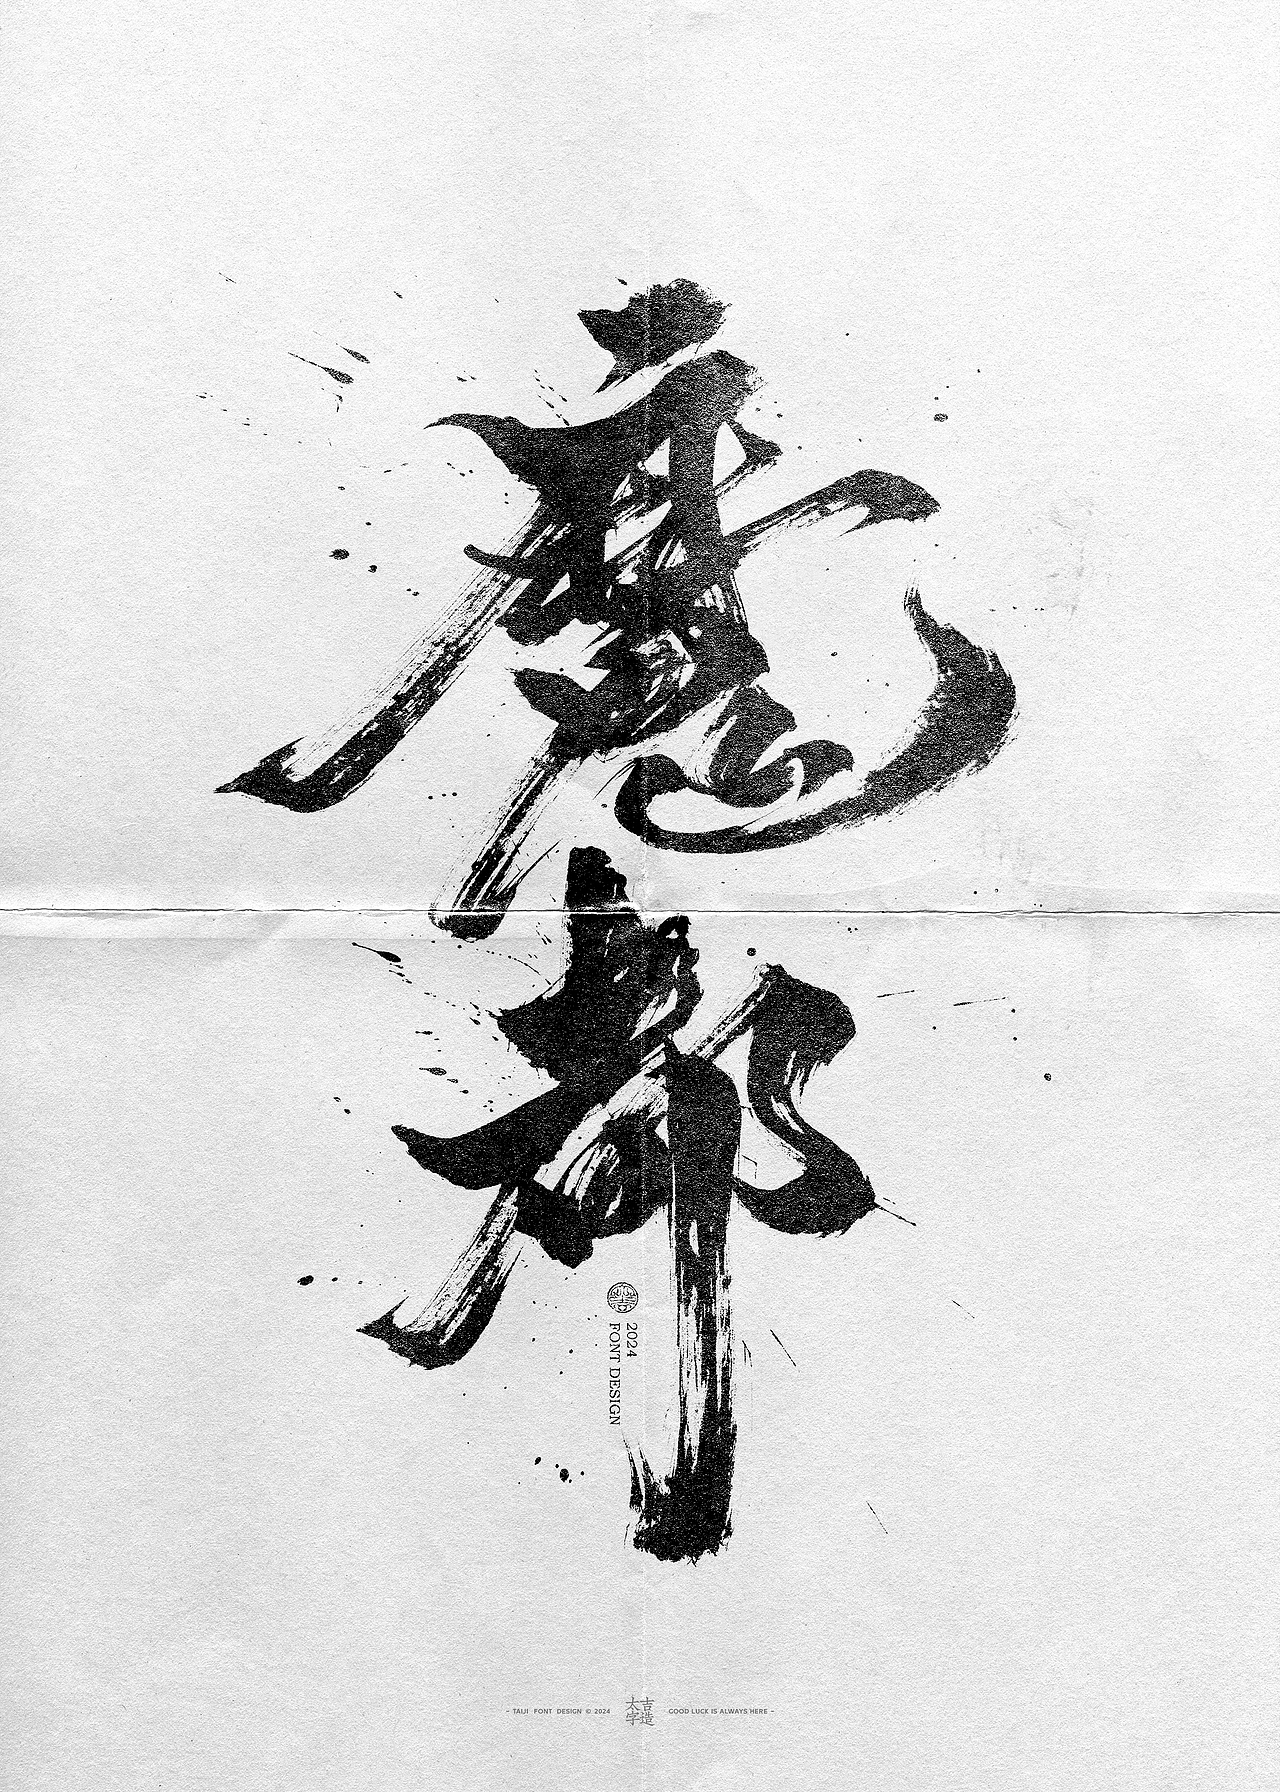 魔
都
2024
FONT DESIGN
- TAIJI FONT DESIGN © 2024
吉造
太字
GOOD LUCK IS ALWAYS HERE -